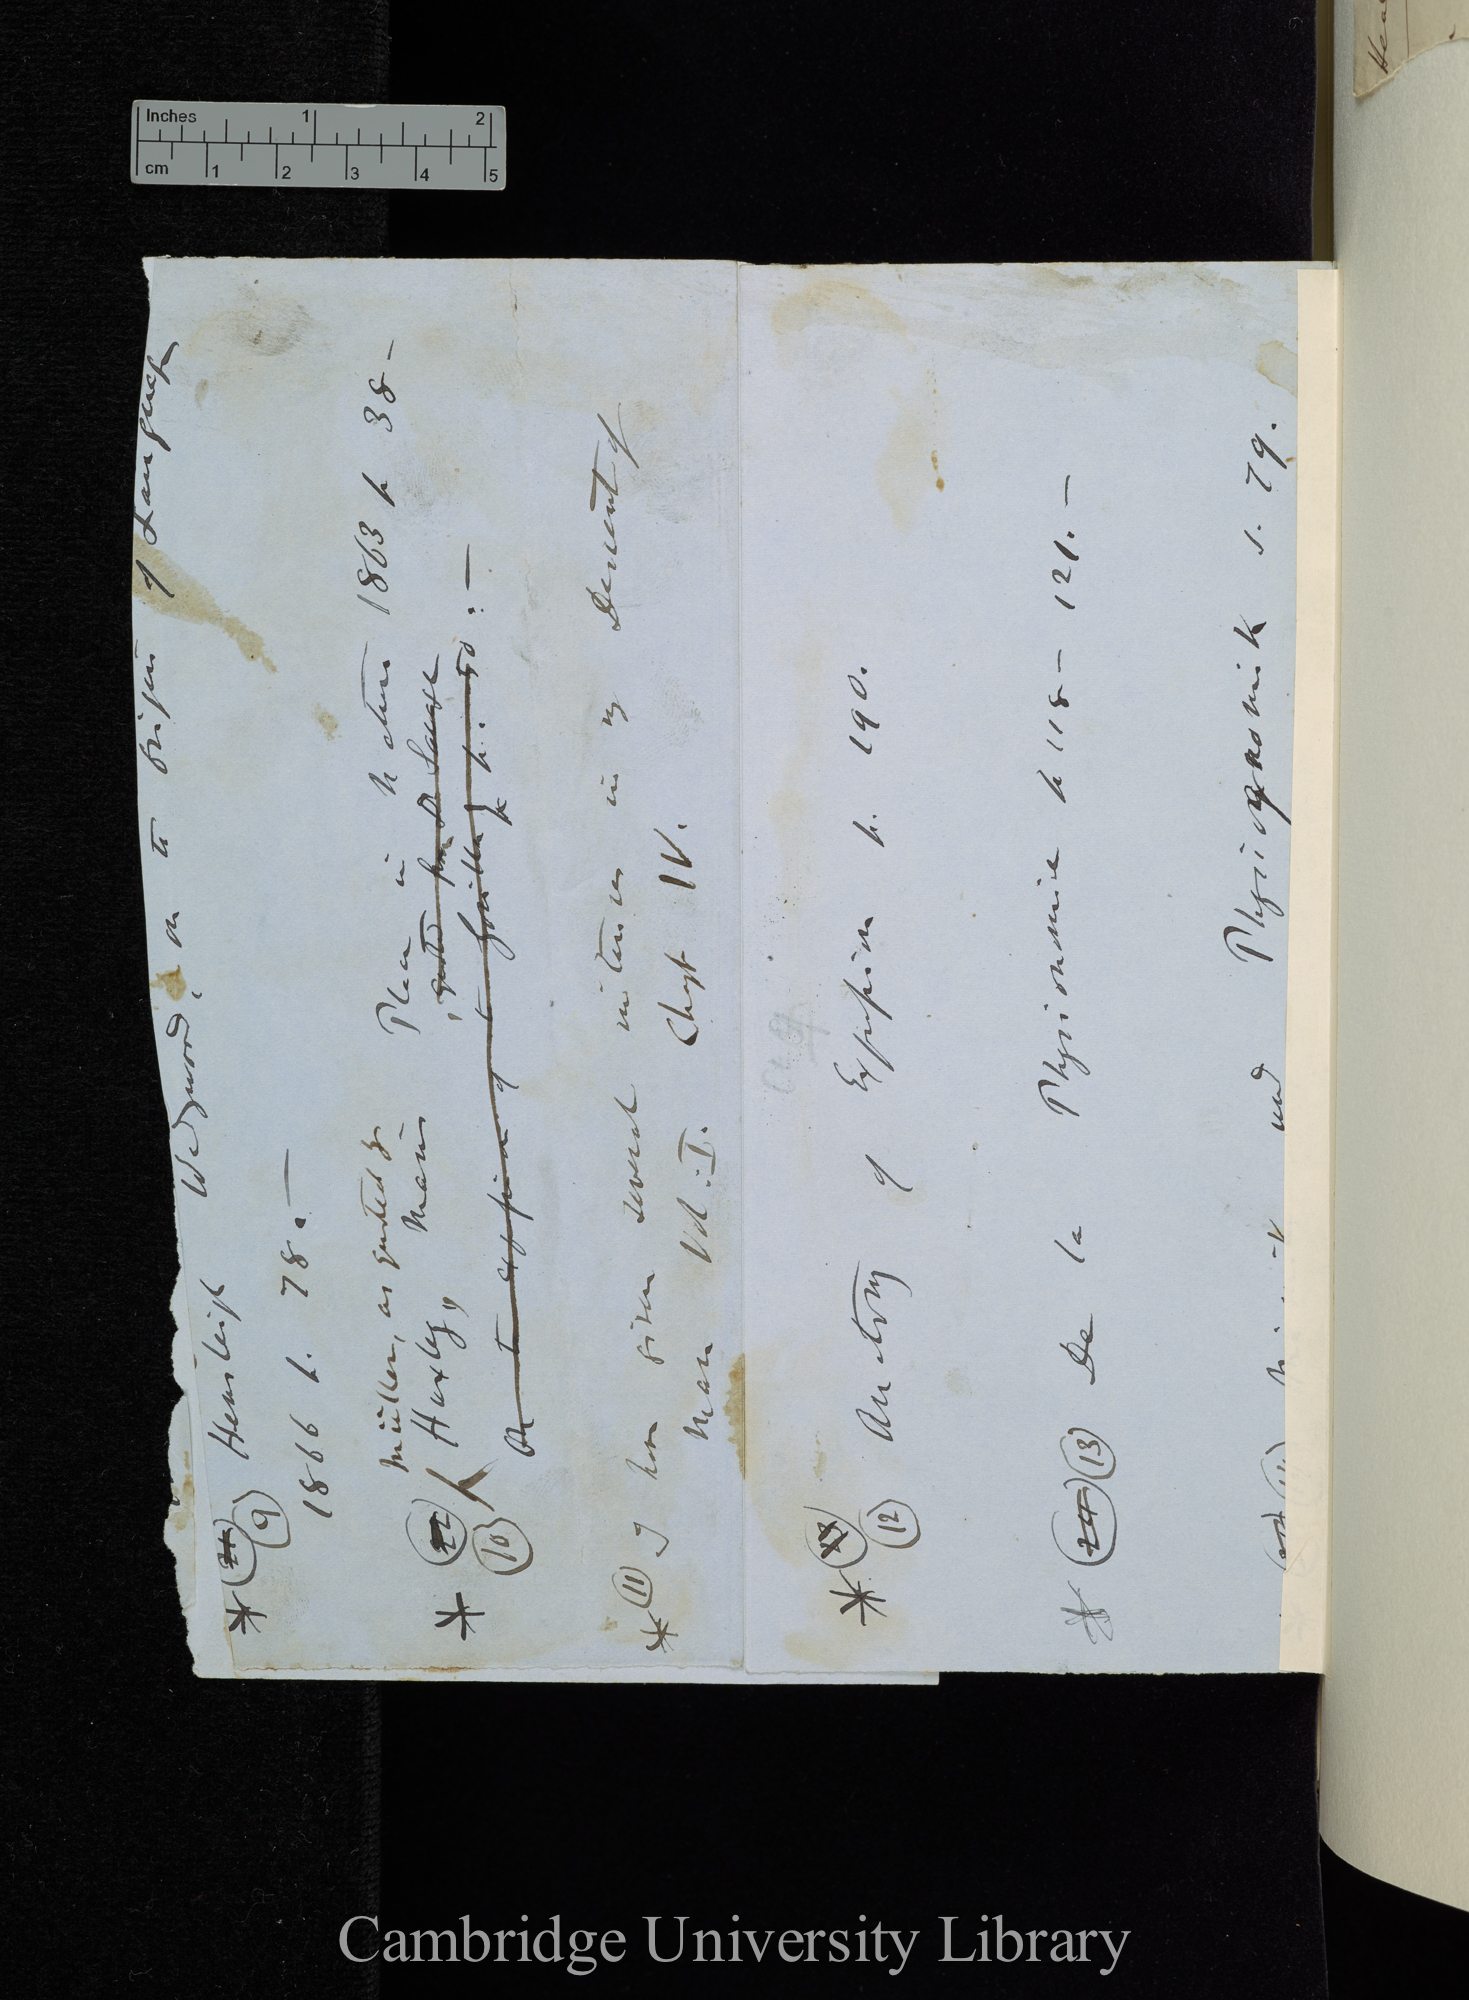 Inches 1 2
cm 1 2 3 4 5
* (21) (9) Hensleigh Wedgwood, on the Origin of Language
1866 p. 78. —
Müller, as quoted by
* (22) (10) Huxley, Mans Place in Nature 1863 p 38 —
On the expression of the Gorilla p. 50 : —
* (11) I have given several instances in my Descent of
Man Vol. I. Chapt IV.
* (23) (12) Anatomy of Expression p. 190.
* (24) (13) De la Physionomie p 118 — 121. —
und Physiognomik s. 79.
Cambridge University Library